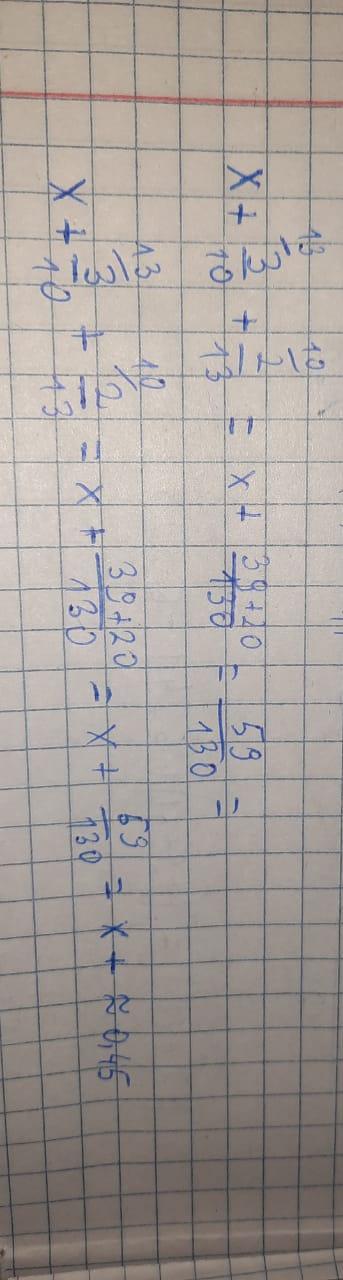 x + 3/10 ¹³ + 2/13 ¹⁰ = x + 39+20/130 = 59/130 =
x + 3/10 ¹³ + 2/13 ¹⁰ = x + 39+20/130 = x + 59/130 = x + ≈ 0,45